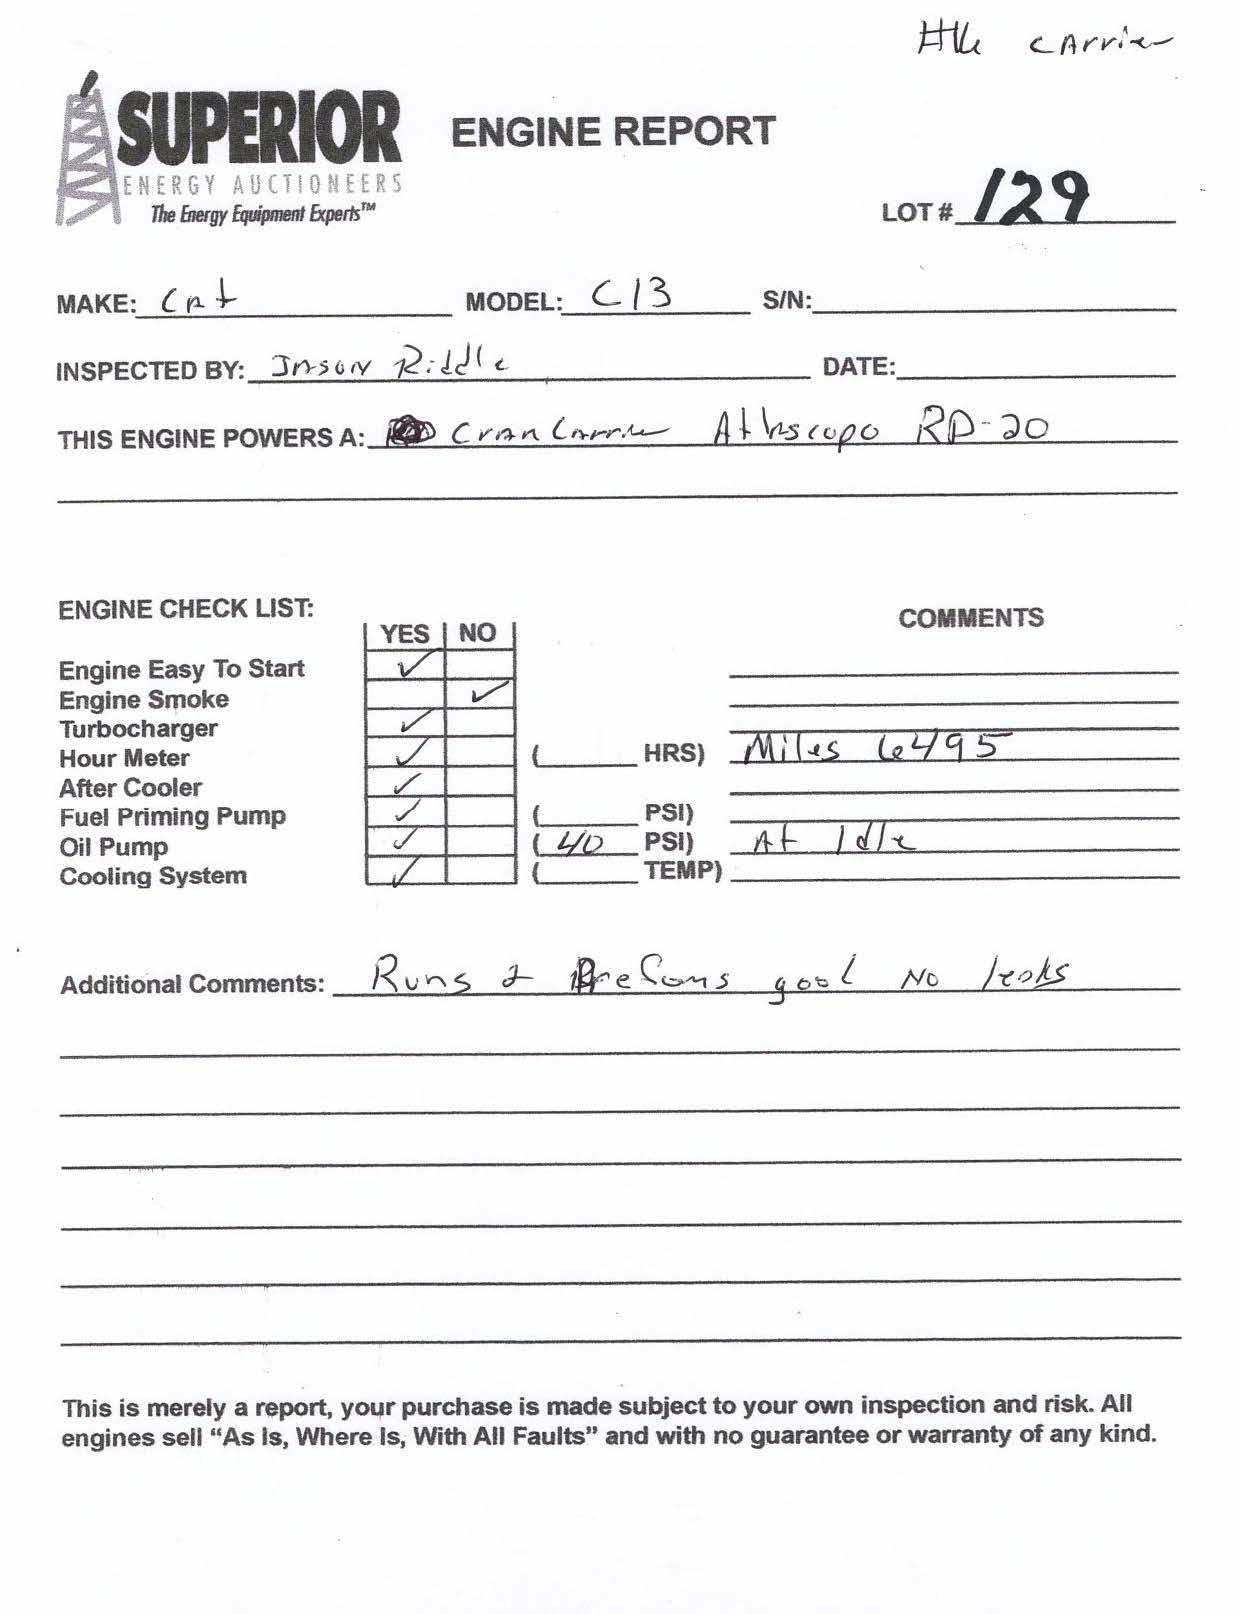 carrier
SUPERIOR
ENERGY AUCTIONEERS
The Energy Equipment Experts™
ENGINE REPORT
LOT # 129
MAKE: Cat MODEL: C13 S/N:
INSPECTED BY: Jason Riddle DATE:
THIS ENGINE POWERS A: Cran Carrier Atlascopo RD-20
ENGINE CHECK LIST:
YES NO COMMENTS
Engine Easy To Start ✓
Engine Smoke ✓
Turbocharger ✓
Hour Meter ✓ ( HRS) Miles 6495
After Cooler ✓
Fuel Priming Pump ✓ ( PSI)
Oil Pump ✓ ( 40 PSI) At Idle
Cooling System ✓ ( TEMP)
Additional Comments: Runs & good No leaks
This is merely a report, your purchase is made subject to your own inspection and risk. All
engines sell “As Is, Where Is, With All Faults” and with no guarantee or warranty of any kind.